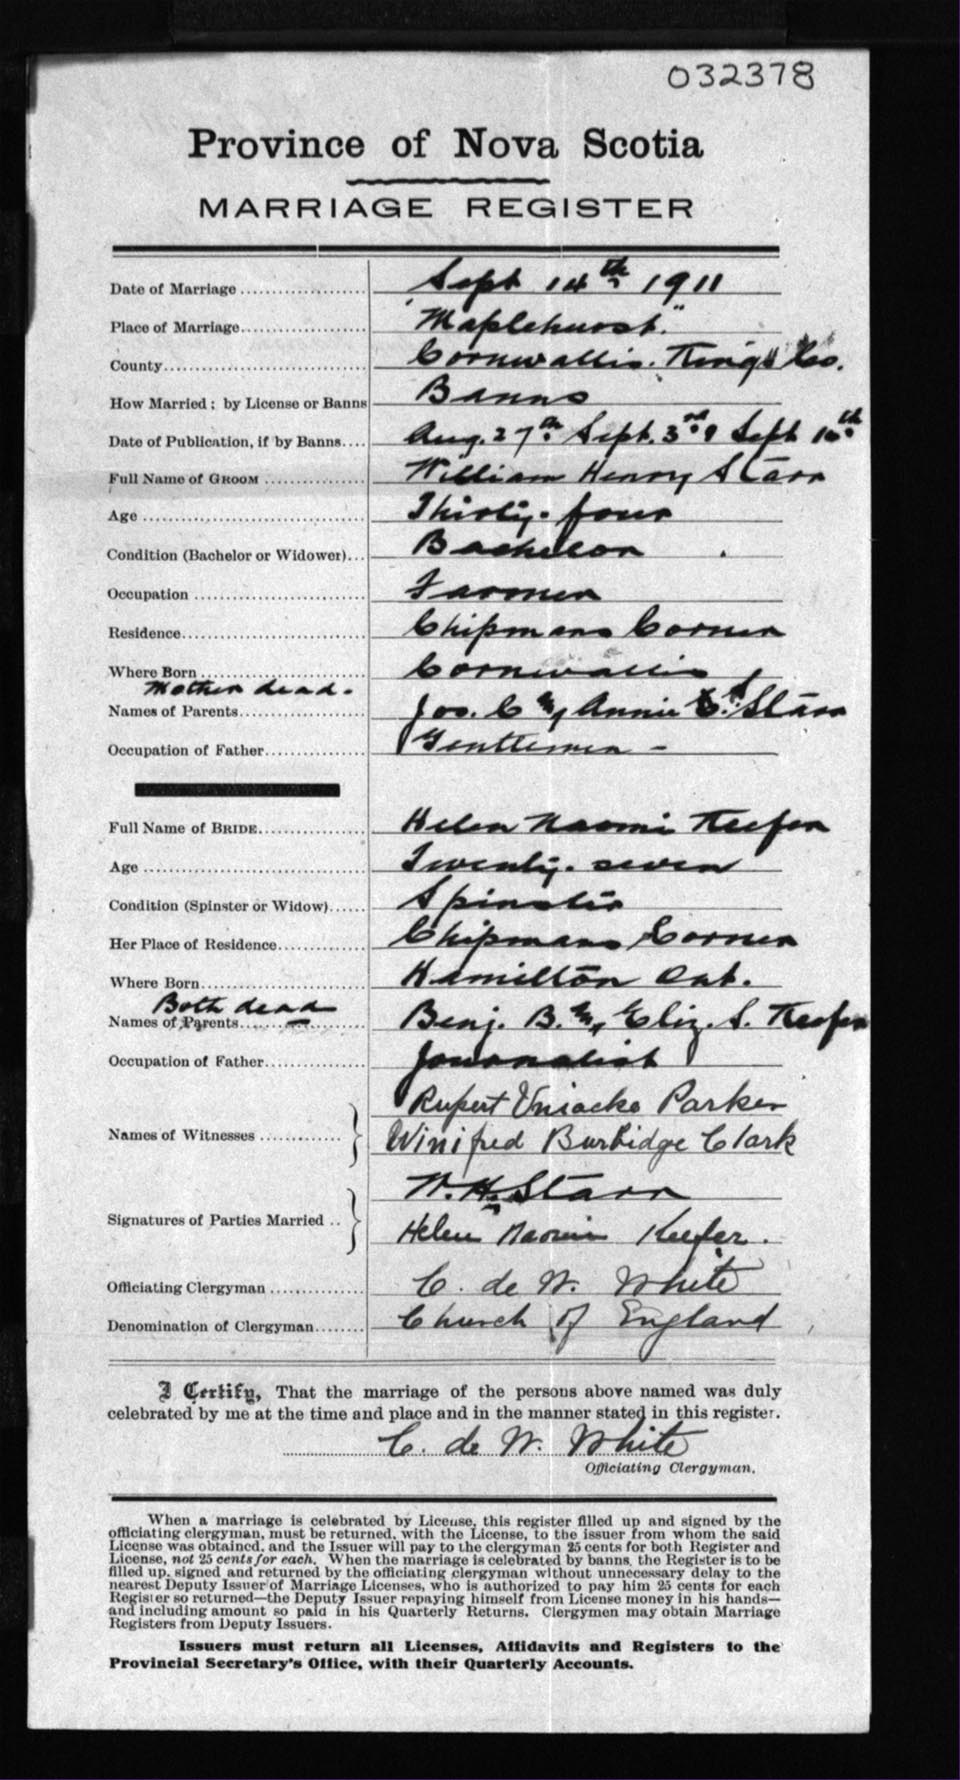 032378
Province of Nova Scotia
MARRIAGE REGISTER
Date of Marriage Sept 14th 1911
Place of Marriage "Maplehurst."
County Cornwallis. King's Co.
How Married; by License or Banns Banns
Date of Publication, if by Banns Aug. 27th Sept. 3rd & Sept 10th
Full Name of GROOM William Henry Starr
Age Thirty-four
Condition (Bachelor or Widower) Bachelor
Occupation Farmer
Residence Chipmans Corner
Where Born Cornwallis
Mother dead.
Names of Parents Jos. C. & Annie Starr
Occupation of Father Gentleman -
Full Name of BRIDE Helen Naomi Keefer
Age Twenty-seven
Condition (Spinster or Widow) Spinster
Her Place of Residence Chipmans Corner
Where Born Hamilton Ont.
Both dead
Names of Parents Benj. B. & Eliz. S. Keefer
Occupation of Father Journalist
Rupert Uniacke Parker
Names of Witnesses
Winifred Burbidge Clark
W. H. Starr
Signatures of Parties Married
Helen Naomi Keefer.
Officiating Clergyman C. de W. White
Denomination of Clergyman Church of England
I Certify, That the marriage of the persons above named was duly
celebrated by me at the time and place and in the manner stated in this register.
C. de W. White
Officiating Clergyman.
When a marriage is celebrated by License, this register filled up and signed by the
officiating clergyman, must be returned, with the License, to the issuer from whom the said
License was obtained, and the Issuer will pay to the clergyman 25 cents for both Register and
License, not 25 cents for each. When the marriage is celebrated by banns, the Register is to be
filled up, signed and returned by the officiating clergyman without unnecessary delay to the
nearest Deputy Issuer of Marriage Licenses, who is authorized to pay him 25 cents for each
Register so returned—the Deputy Issuer repaying himself from License money in his hands—
and including amount so paid in his Quarterly Returns. Clergymen may obtain Marriage
Registers from Deputy Issuers.
Issuers must return all Licenses, Affidavits and Registers to the
Provincial Secretary's Office, with their Quarterly Accounts.